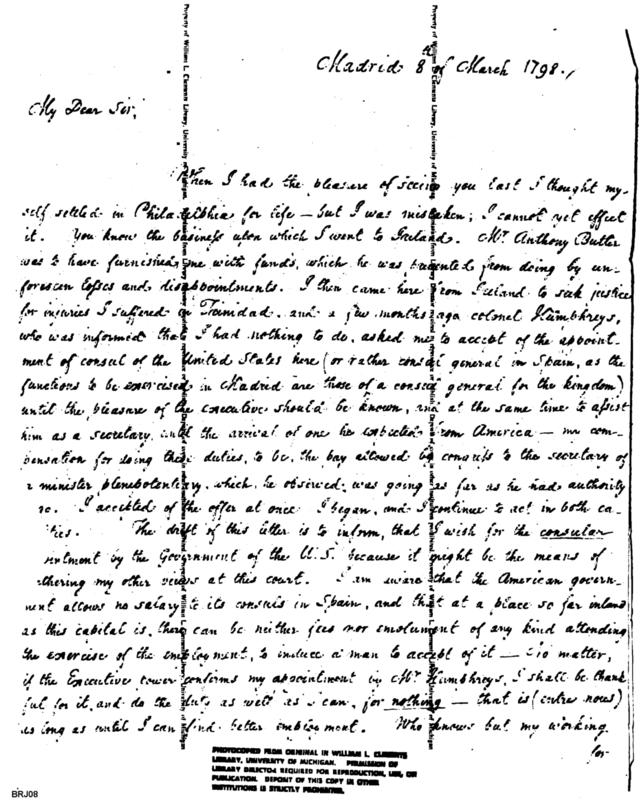 Madrid 8th of March 1798.,
My Dear Sir,
When I had the pleasure of seeing you last I thought my-
self settled in Philadelphia for life – but I was mistaken; I cannot yet effect
it. You know the business upon which I went to Ireland. Mr. Anthony Butler
was to have furnished me with funds, which he was prevented from doing by un-
foreseen losses and disappointments. I then came here from Ireland to seek justice
for injuries I suffered in Trinidad, and a few months ago colonel Humphreys,
who was informed that I had nothing to do, asked me to accept of the appoint-
ment of consul of the United States here (or rather consul general in Spain, as the
functions to be exercised in Madrid are those of a consul general for the kingdom)
until the pleasure of the executive should be known, and at the same time to assist
him as a secretary until the arrival of one he expected from America – my com-
pensation for doing these duties, to be, the pay allowed by congress to the secretary of
a minister plenipotentiary, which, he observed, was going as far as he had authority
I accepted of the offer at once I began, and I continue to act in both ca-
ties. The drift of this letter is to inform, that I wish for the consular
ointment by the Government of the U.S. because it might be the means of
thering my other views at this court. I am aware that the American govern-
ment allows no salary to its consuls in Spain, and that at a place so far inland
as this capital is, there can be neither fees nor emolument of any kind attending
the exercise of the employment, to induce a man to accept of it – No matter,
if the Executive power confirms my appointment by Mr. Humphreys, I shall be thank
ful for it, and do the duty as well as I can, for nothing – that is (entre nous)
as long as until I can find better employment. Who knows but my working
for
Property of William L. Clements Library, University of Michigan
PHOTOCOPIED FROM ORIGINAL IN WILLIAM L. CLEMENTS
LIBRARY, UNIVERSITY OF MICHIGAN. PERMISSION OF
LIBRARY DIRECTOR REQUIRED FOR REPRODUCTION, USE, OR
PUBLICATION. DEPOSIT OF THIS COPY IN OTHER
INSTITUTIONS IS STRICTLY PROHIBITED.
BRJ08